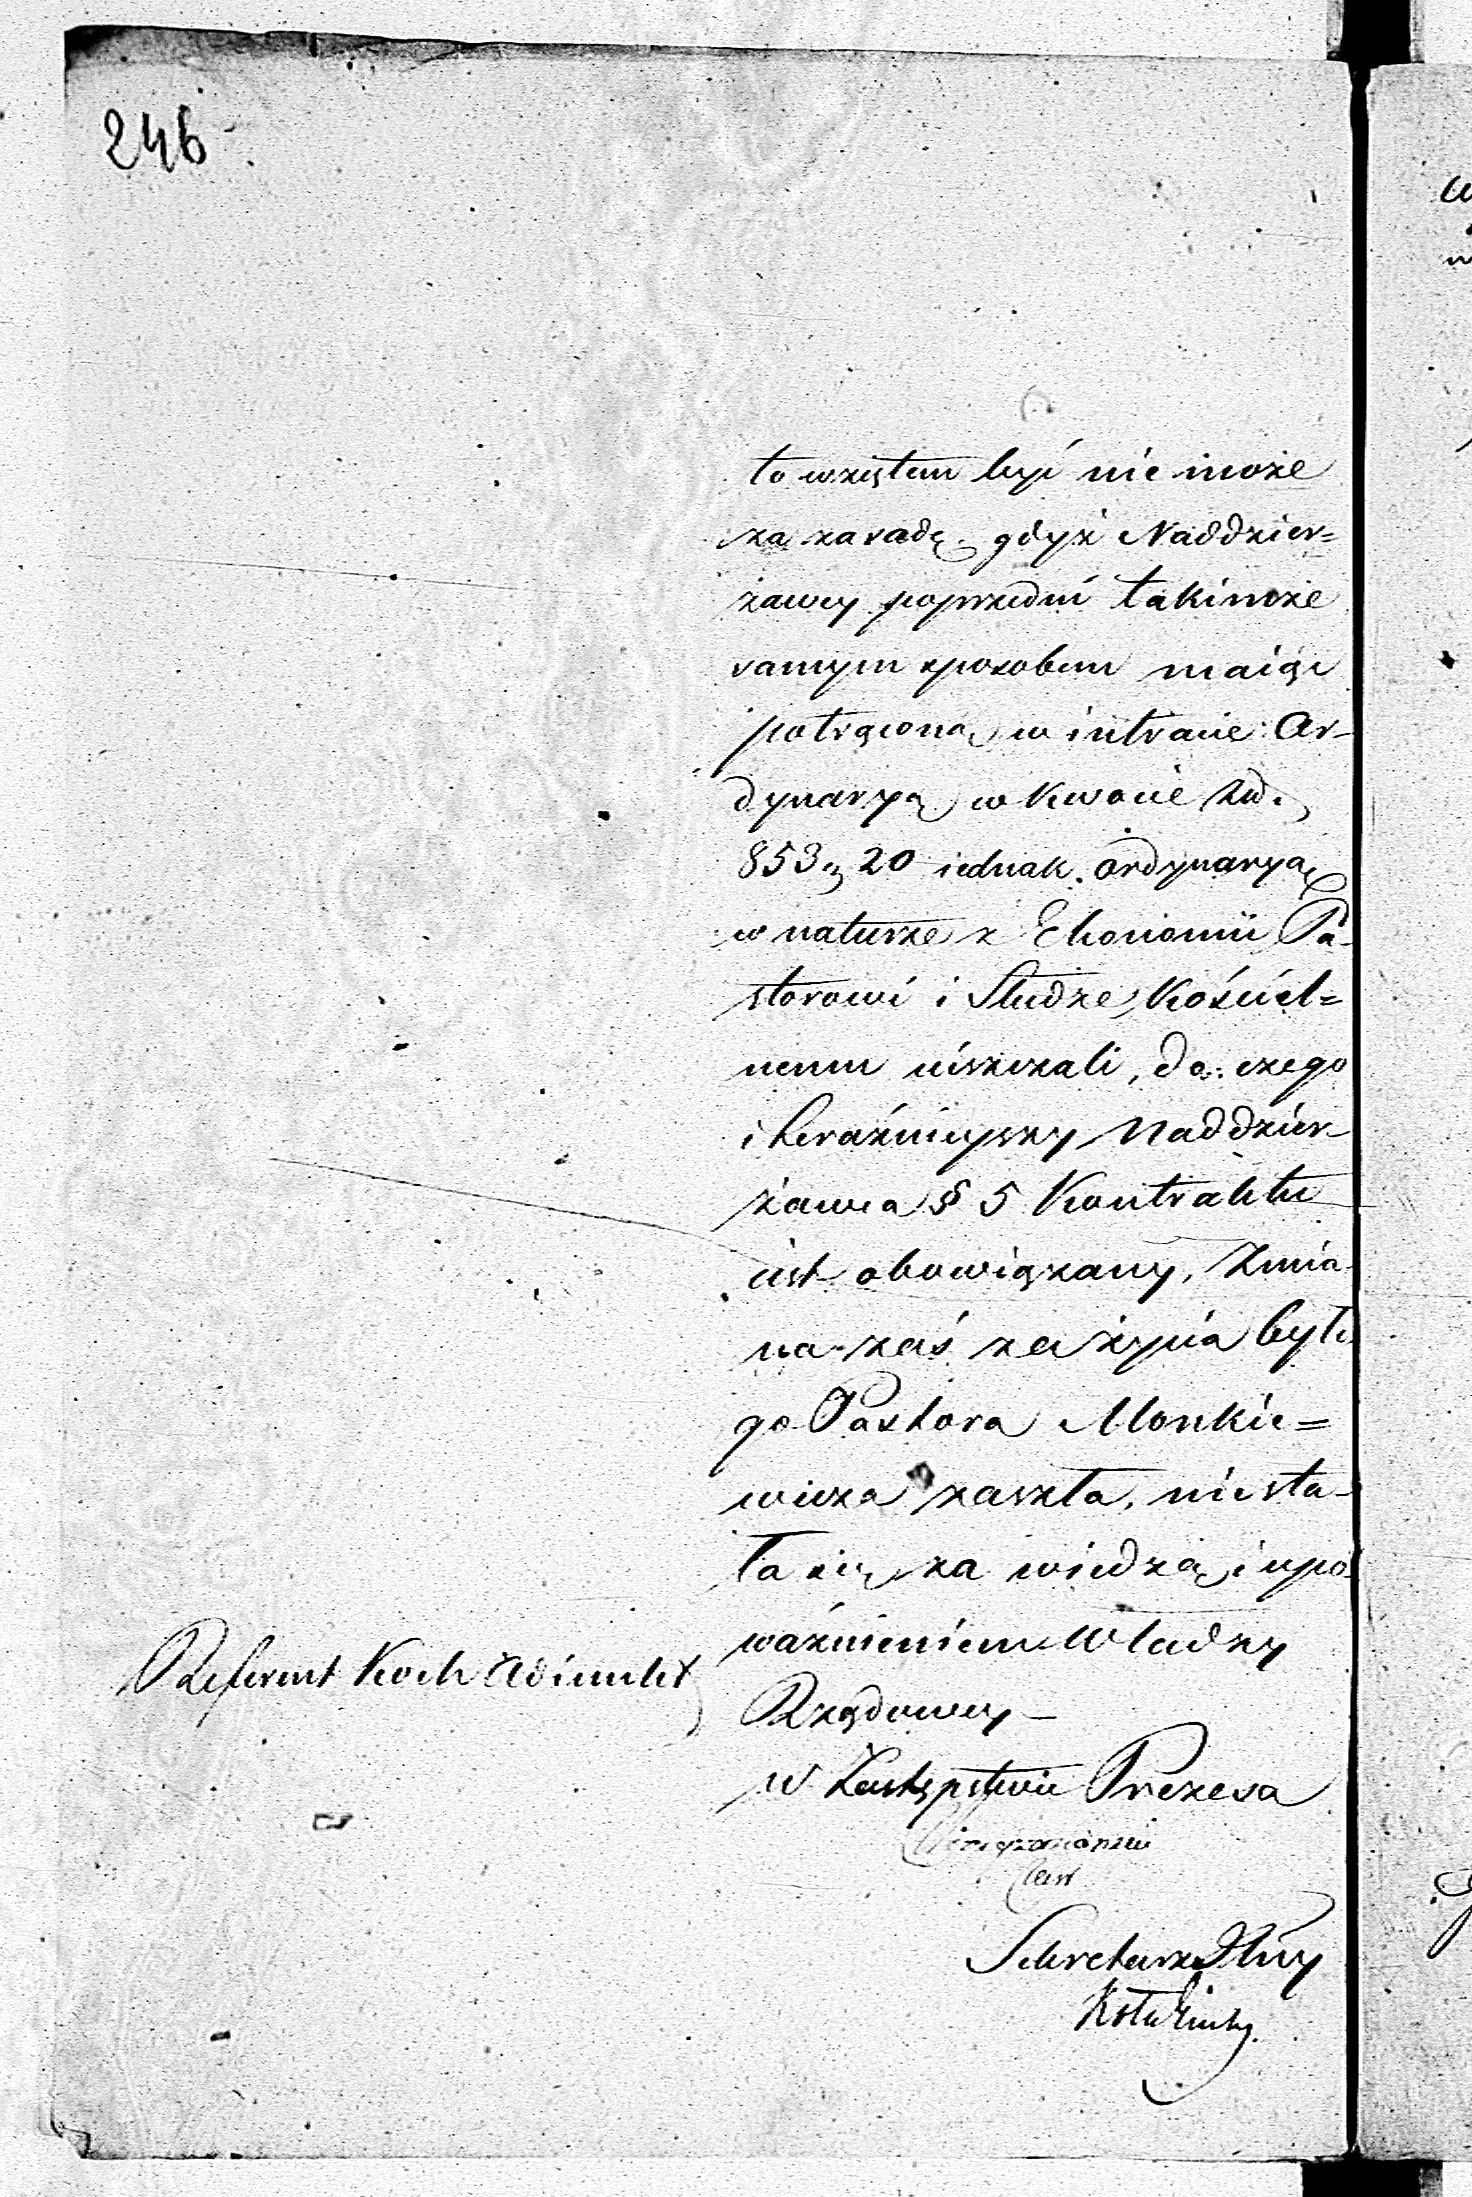 246
to wziętem być nie może
za zasadę, gdyż Naddzier=
żawcy poprzedni takimże
samym sposobem maiąc
potrąconą w intracie Or-
dynaryą w kwocie Złł.
853, 20 iednak ordynaryą
w naturze z Ekonomii Pa-
storowi i Słudze Kościel=
nemu uiszczali, do czego
i teraźnieyszy Naddzier-
żawca § 5 Kontraktu
iest obowiązany, Zmia-
na zaś za życia byłe
go Pastora Monkie=
wicza zaszła, niesta-
ła się za wiedzą i upo-
ważnieniem Władzy
Rządowey –
Referent Koch Adiunkt
w Zastępstwie Prezesa
Sekretarz Jlny